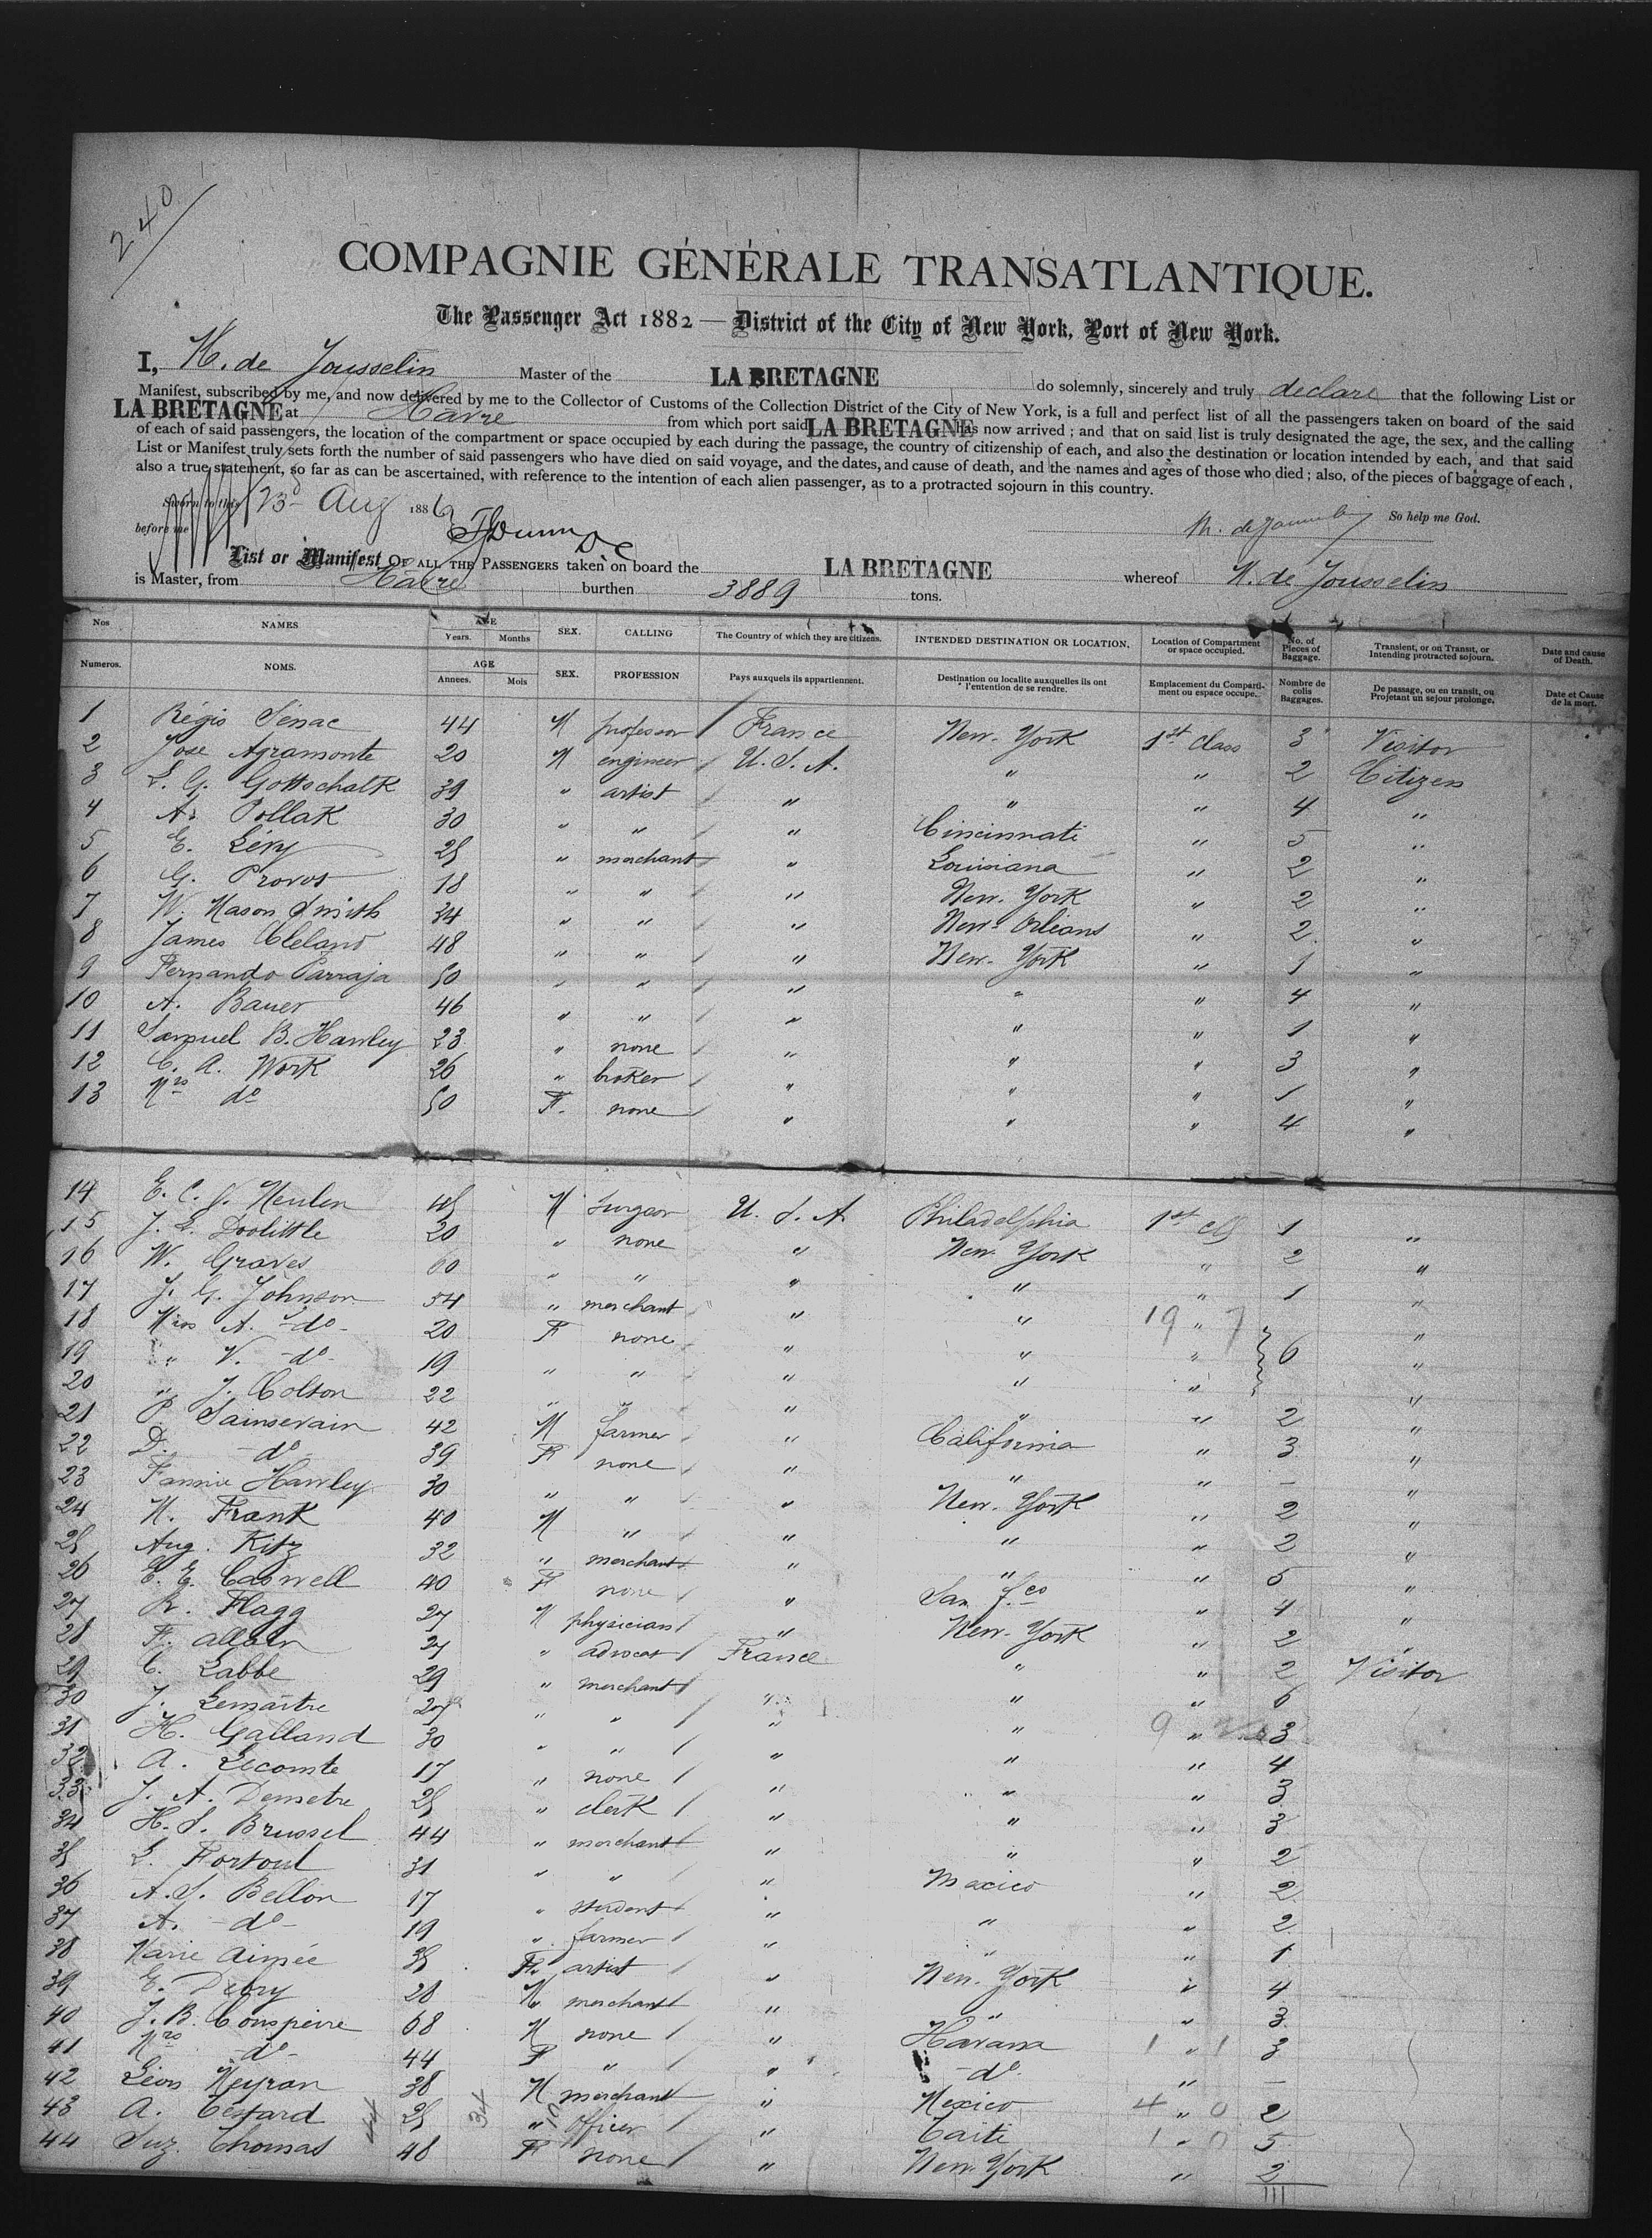 240
COMPAGNIE GÉNÉRALE TRANSATLANTIQUE.
The Passenger Act 1882 — District of the City of New York, Port of New York.
I, M. de Jousselin Master of the LA BRETAGNE do solemnly, sincerely and truly declare that the following List or
Manifest, subscribed by me, and now delivered by me to the Collector of Customs of the Collection District of the City of New York, is a full and perfect list of all the passengers taken on board of the said
LA BRETAGNE at Havre from which port said LA BRETAGNE has now arrived ; and that on said list is truly designated the age, the sex, and the calling
of each of said passengers, the location of the compartment or space occupied by each during the passage, the country of citizenship of each, and also the destination or location intended by each, and that said
List or Manifest truly sets forth the number of said passengers who have died on said voyage, and the dates, and cause of death, and the names and ages of those who died ; also, of the pieces of baggage of each ,
also a true statement, so far as can be ascertained, with reference to the intention of each alien passenger, as to a protracted sojourn in this country.
Sworn to this 23 Aug 1886
before me So help me God.
List or Manifest OF ALL THE PASSENGERS taken on board the LA BRETAGNE whereof M. de Jousselin
is Master, from Havre burthen 3889 tons.
Nos NAMES AGE Years. Months SEX. CALLING The Country of which they are citizens. INTENDED DESTINATION OR LOCATION. Location of Compartment or space occupied. No. of Pieces of Baggage. Transient, or on Transit, or Intending protracted sojourn. Date and cause of Death.
Numeros. NOMS. AGE Annees. Mois SEX. PROFESSION Pays auxquels ils appartiennent. Destination ou localite auxquelles ils ont l'entention de se rendre. Emplacement du Comparti-ment ou espace occupe. Nombre de colis Baggages. De passage, ou en transit, ou Projetant un sejour prolonge. Date et Cause de la mort.
1 Régis Sénac 44 M professor France New-York 1st Class 3 Visitor
2 Jose Agramonte 20 M engineer U.S.A. " " 2 Citizen
3 L. G. Gottschalk 39 " artist " " " 4 "
4 A. Pollak 30 " " " Cincinnati " 5 "
5 E. Lévy 25 " merchant " Louisiana " 2 "
6 G. Provos 18 " " " New-York " 2 "
7 W. Mason Smith 34 " " " New-Orleans " 2 "
8 James Cleland 48 " " " New-York " 1 "
9 Fernando Parraja 50 " " " " " 4 "
10 A. Bauer 46 " " " " " 1 "
11 Samuel B. Hawley 23 " none " " " 3 "
12 C. A. Work 26 " broker " " " 1 "
13 Mrs do 50 F. none " " " 4 "
14 E. C. J. 45 M U.S.A. Philadelphia 1st 1 "
15 J. L. Doolittle 20 " none " New-York " 2 "
16 W. Graves 60 " " " " " 1 "
17 J. G. Johnson 54 " merchant " " 19 " 7 "
18 Miss A. do 20 F none " " " 6 "
19 " V. do 19 " " " " " "
20 " J. Colson 22 " " " " " 2 "
21 P. Sainsevain 42 M farmer " California " 3 "
22 D. do 39 F none " " " - "
23 Fannie Hawley 30 " " " New-York " 2 "
24 M. Frank 40 M " " " " 2 "
25 Aug. Kitz 32 " merchant " " " 5 "
26 C. E. Caswell 40 F none " San Fco " 4 "
27 R. Flagg 27 M physician " New-York " 2 "
28 F. Allain 27 " advocat France " " 2 Visitor
29 C. Labbe 29 " merchant " " " 6
30 J. Lemaitre 27 " " " " 9 " 3
31 H. Galland 30 " " " " " 4
32 A. Lecomte 17 " none " " " 3
33 J. A. Demetre 25 " clerk " " " 3
34 H. S. Brussel 44 " merchant " " " 2
35 L. Fortoul 31 " " " Mexico " 2
36 A. S. Bellon 17 " student " " " 2
37 A. do 19 " farmer " " " 1
38 Marie Aimée 35 F. artist " New-York " 4
39 E. Debry 28 M merchant " " " 3
40 J. B. Conspeire 68 M none " Havana 1 " 1 3
41 Mrs do 44 F " " do " -
42 Léon Meyran 38 M merchant " Mexico 4 " 0 2
43 A. Testard 25 " officer " Taiti 1 " 0 5
44 Suz. Thomas 48 F none " New-York " 2
44 34 10 111